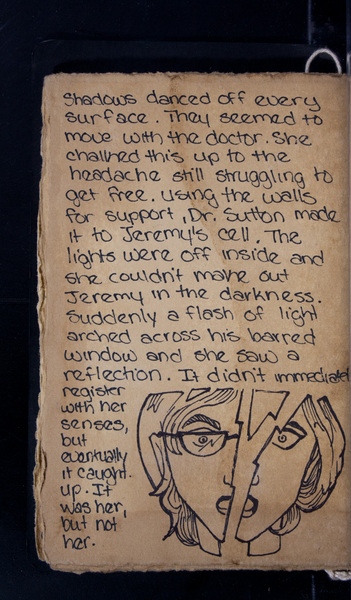 Shadows danced off every
surface. They seemed to
move with the doctor. She
chalked this up to the
headache still struggling to
get free. Using the walls
for support, Dr. Sutton made
it to Jeremy's cell. The
lights were off inside and
she couldn't make out
Jeremy in the darkness.
Suddenly a flash of light
arched across his barred
window and she saw a
reflection. It didn't immediately
register
with her
senses,
but
eventually
it caught
up. It
was her,
but not
her.